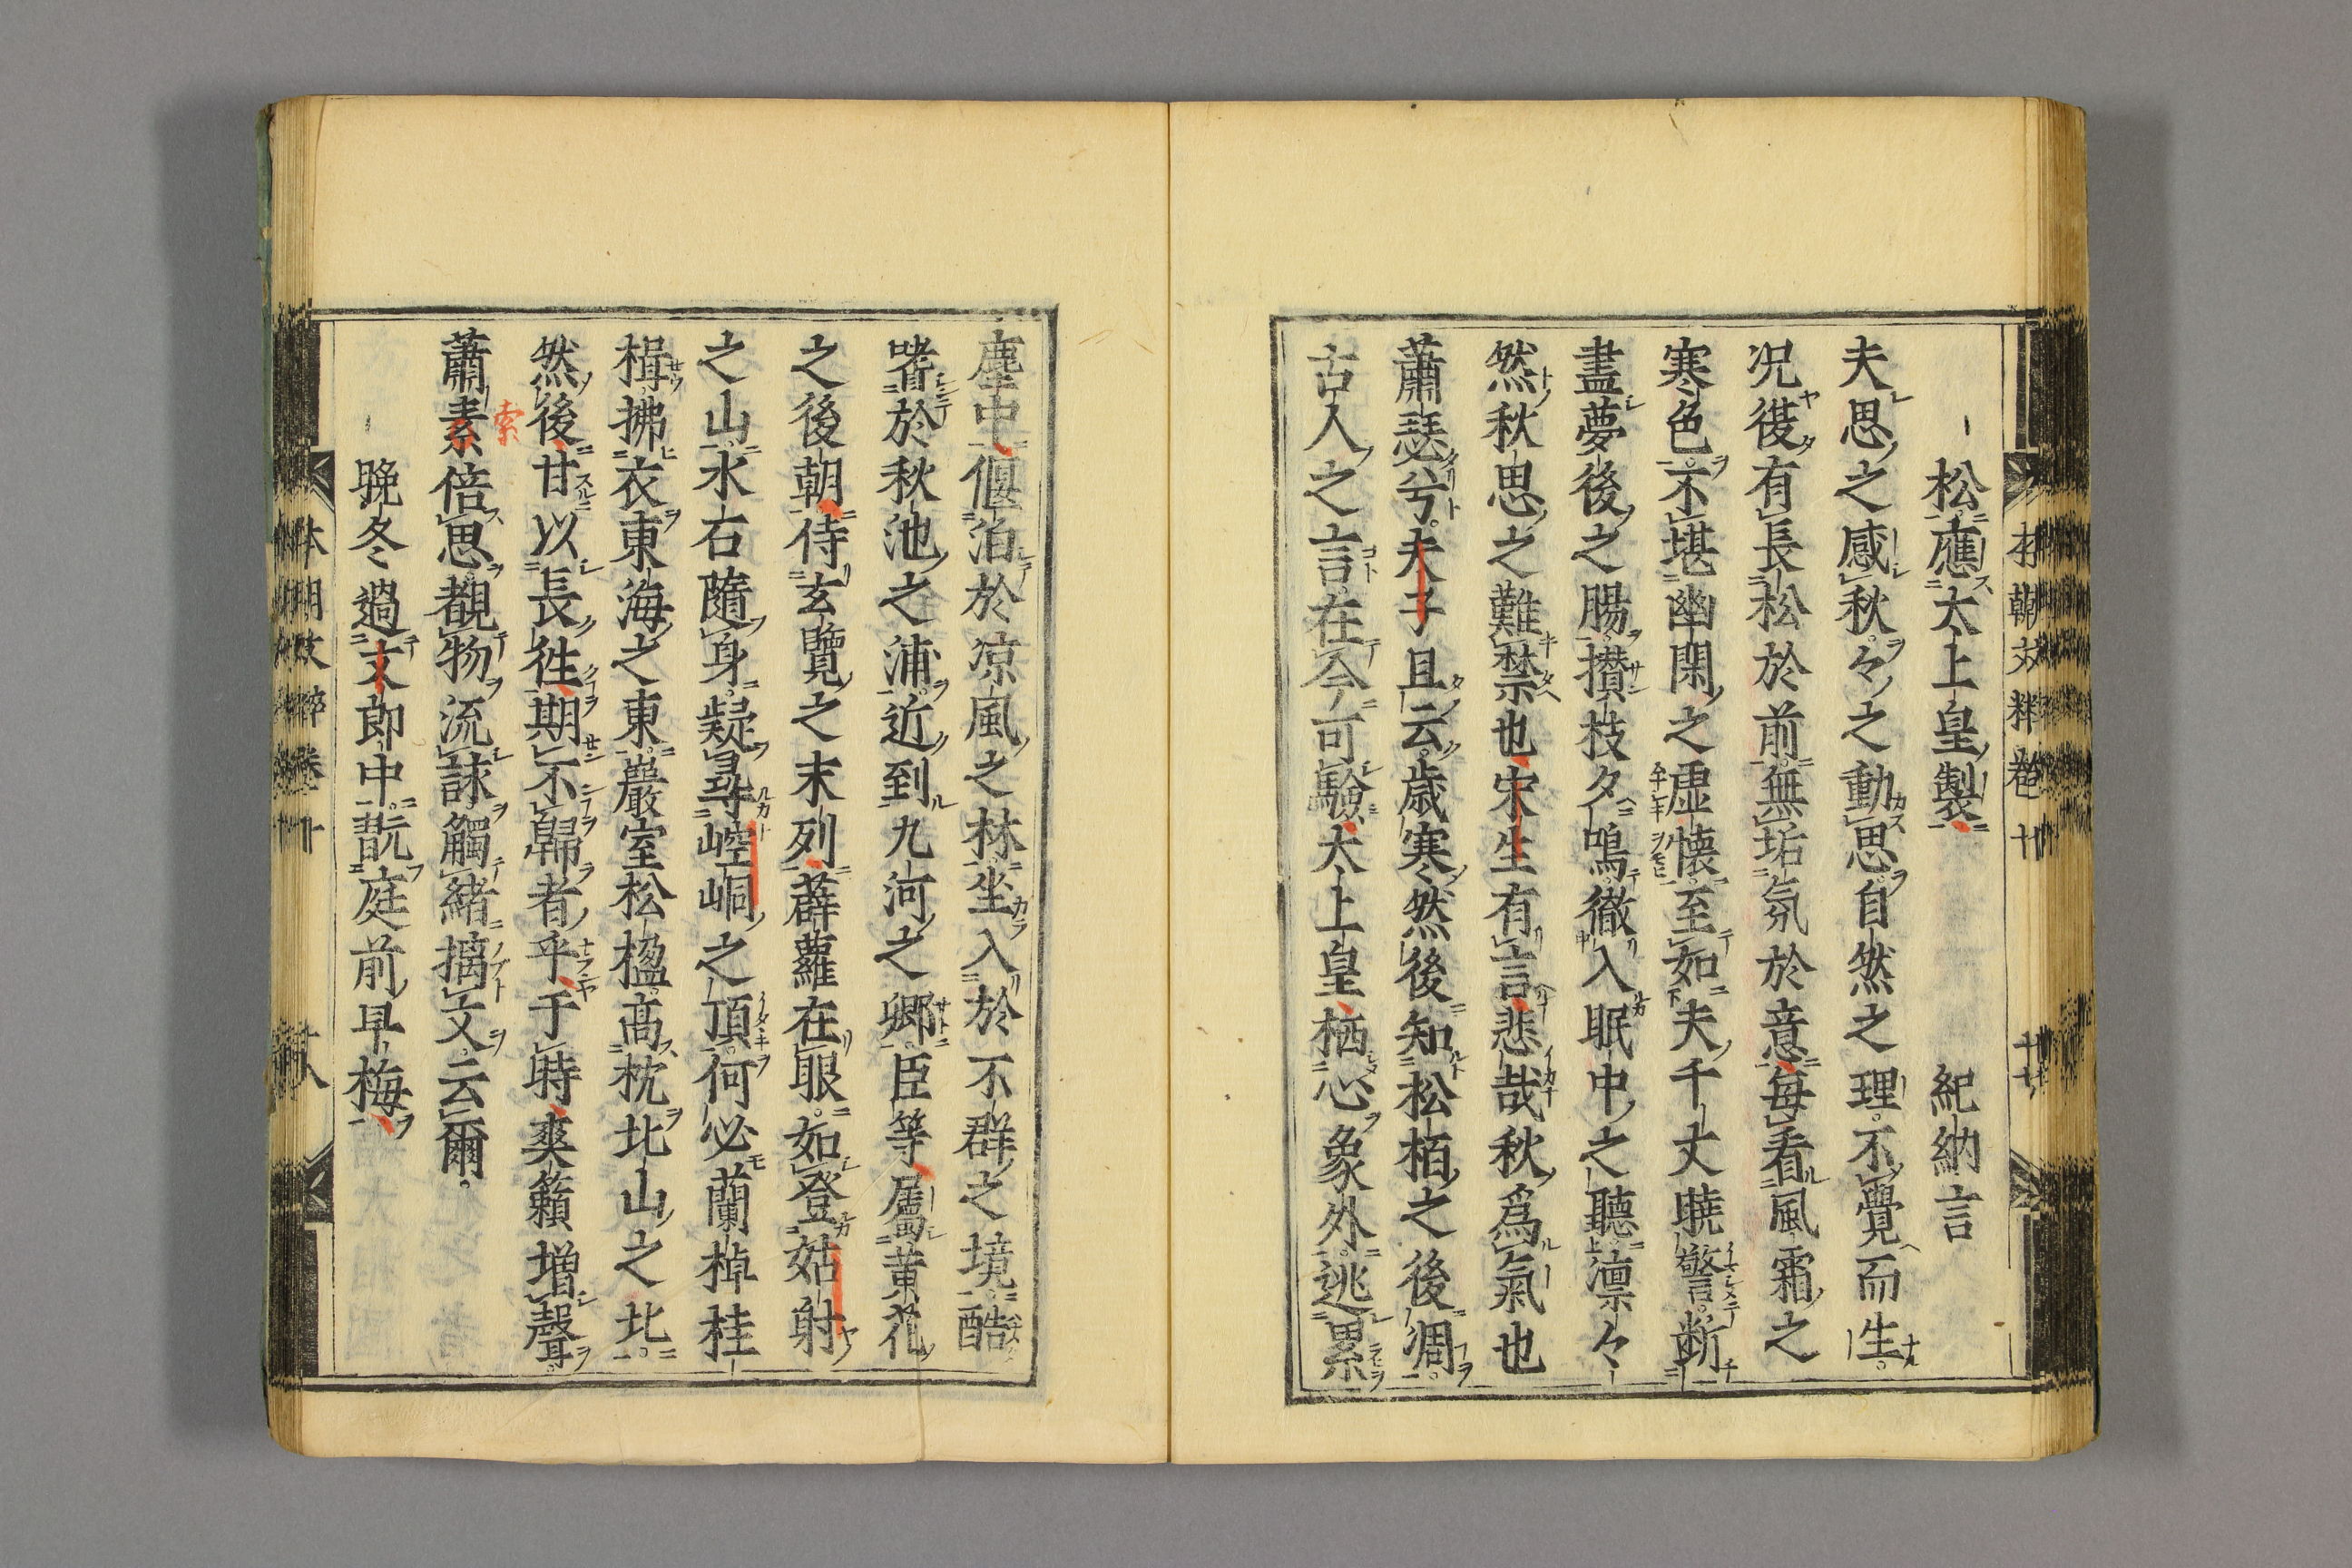 松應太上皇製 紀納言
夫思之感秋々之動思自然之理不覺而生
況復有長松於前無垢氛於意毎看風霜之
寒色不堪幽閑之虚懐至如夫千丈暁警断
盡夢後之腸攅枝夕鳴徹入眠中之聴凛々
然秋思之難禁也宋生有言悲哉秋爲氣也
蕭瑟兮夫子且云歳寒然後知松栢之後凋
古人之言在今可驗太上皇栖心象外逃累
塵中偃泊於凉風之林坐入於不群之境酷
嗜於秋池之浦近到九河之郷臣等属黄花
之後朝侍玄覽之末列薜蘿在眼如登姑射
之山水石隨身疑尋崆峒之頂何必蘭棹桂
楫拂衣東海之東巖室松楹高枕北山之北
然後甘以長徃期不歸者乎于時爽籟増聲
索
蕭素倍思覩物流詠觸緒摛文云爾
晩冬過文郎中翫庭前早梅
本朝文粹卷十 十八